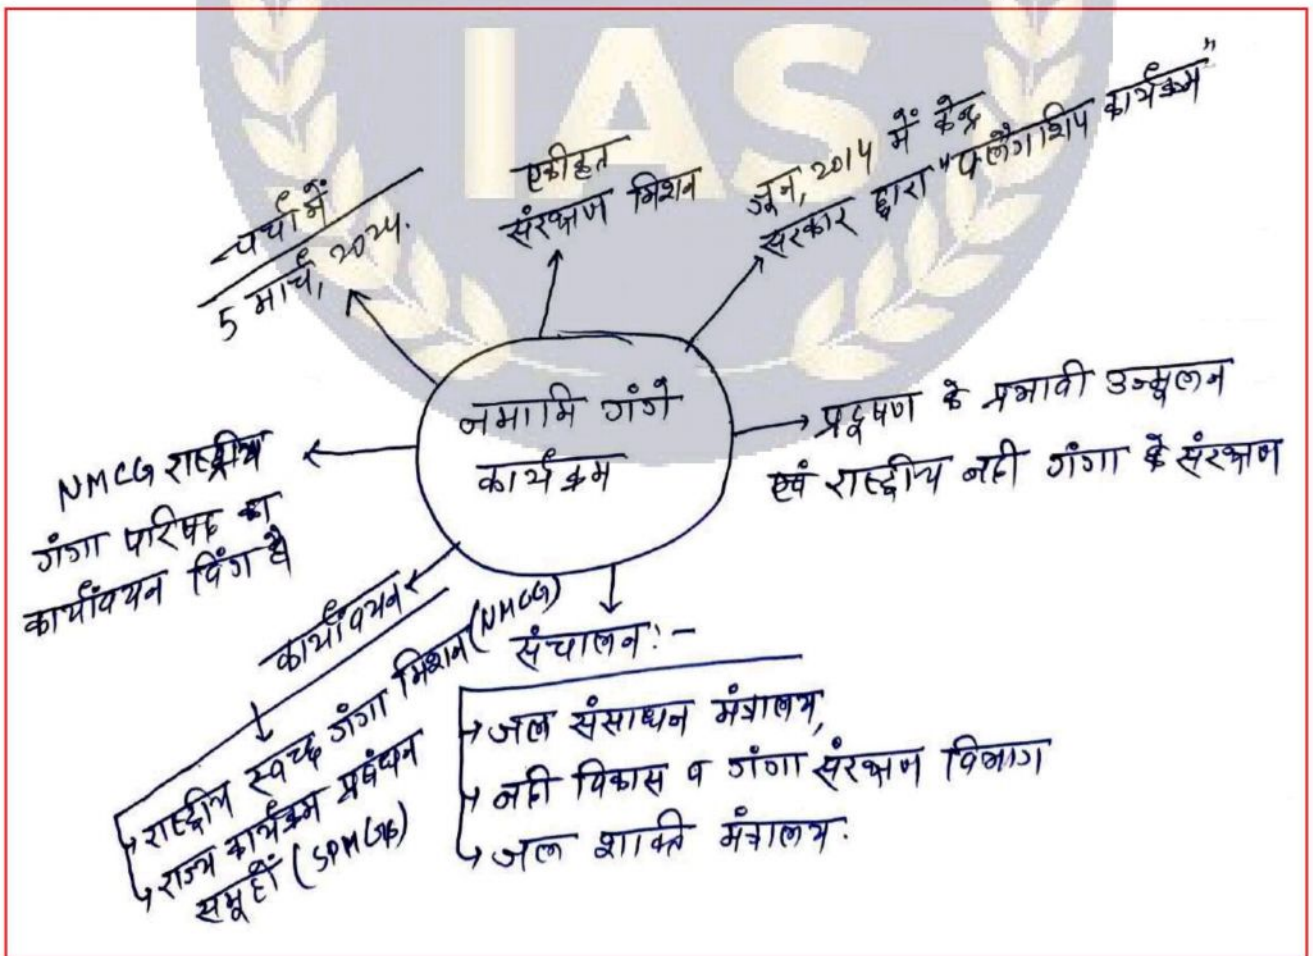 IAS
चर्चा में
5 मार्च, 2024.
एकीकृत
संरक्षण मिशन
जून, 2014 में केन्द्र
सरकार द्वारा "फ्लैगशिप कार्यक्रम"
नमामि गंगे
कार्यक्रम
प्रदूषण के प्रभावी उन्मूलन
एवं राष्ट्रीय नदी गंगा के संरक्षण
NMCG राष्ट्रीय
गंगा परिषद का
कार्यान्वयन विंग है
कार्यान्वयन
राष्ट्रीय स्वच्छ गंगा मिशन (NMCG)
राज्य कार्यक्रम प्रबंधन
समूहों (SPMGs)
संचालन:-
जल संसाधन मंत्रालय,
नदी विकास व गंगा संरक्षण विभाग
जल शक्ति मंत्रालय.